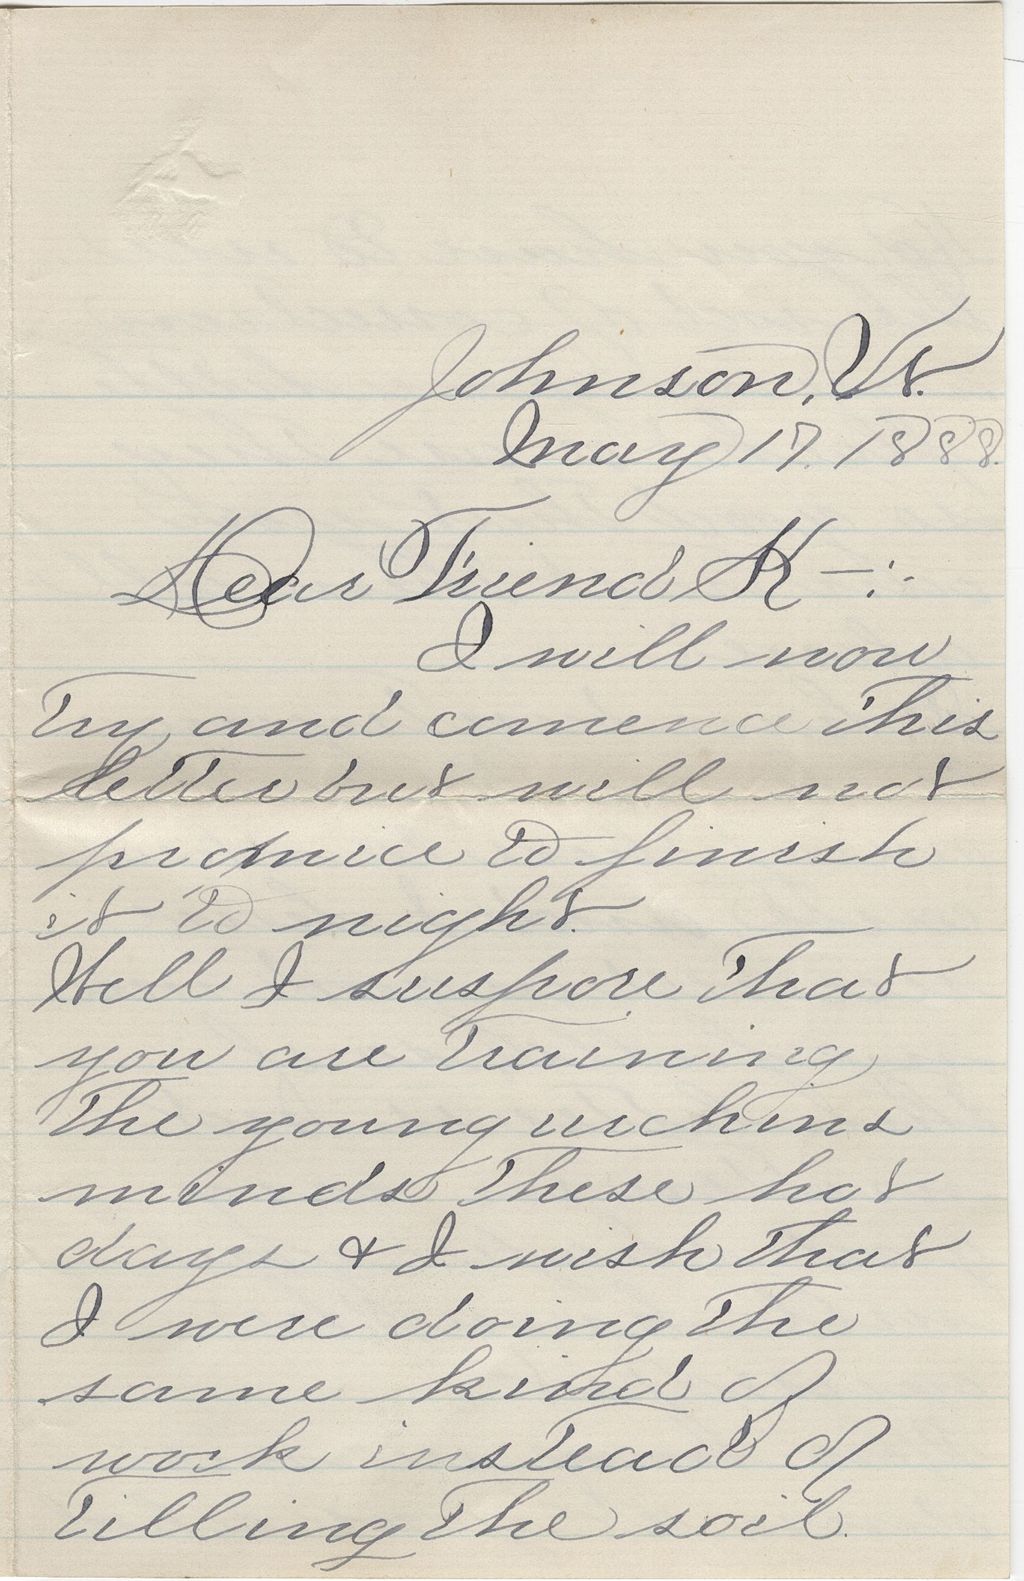 Johnson, Vt.
May 17. 1888.
Dear Friend K—:.
I will now
try and comence this
letter but will not
promice to finish
it to night.
Well I suspose that
you are training
the young urchins
minds these hot
days & I wish that
I were doing the
same kind of
work instead of
tilling the soil.